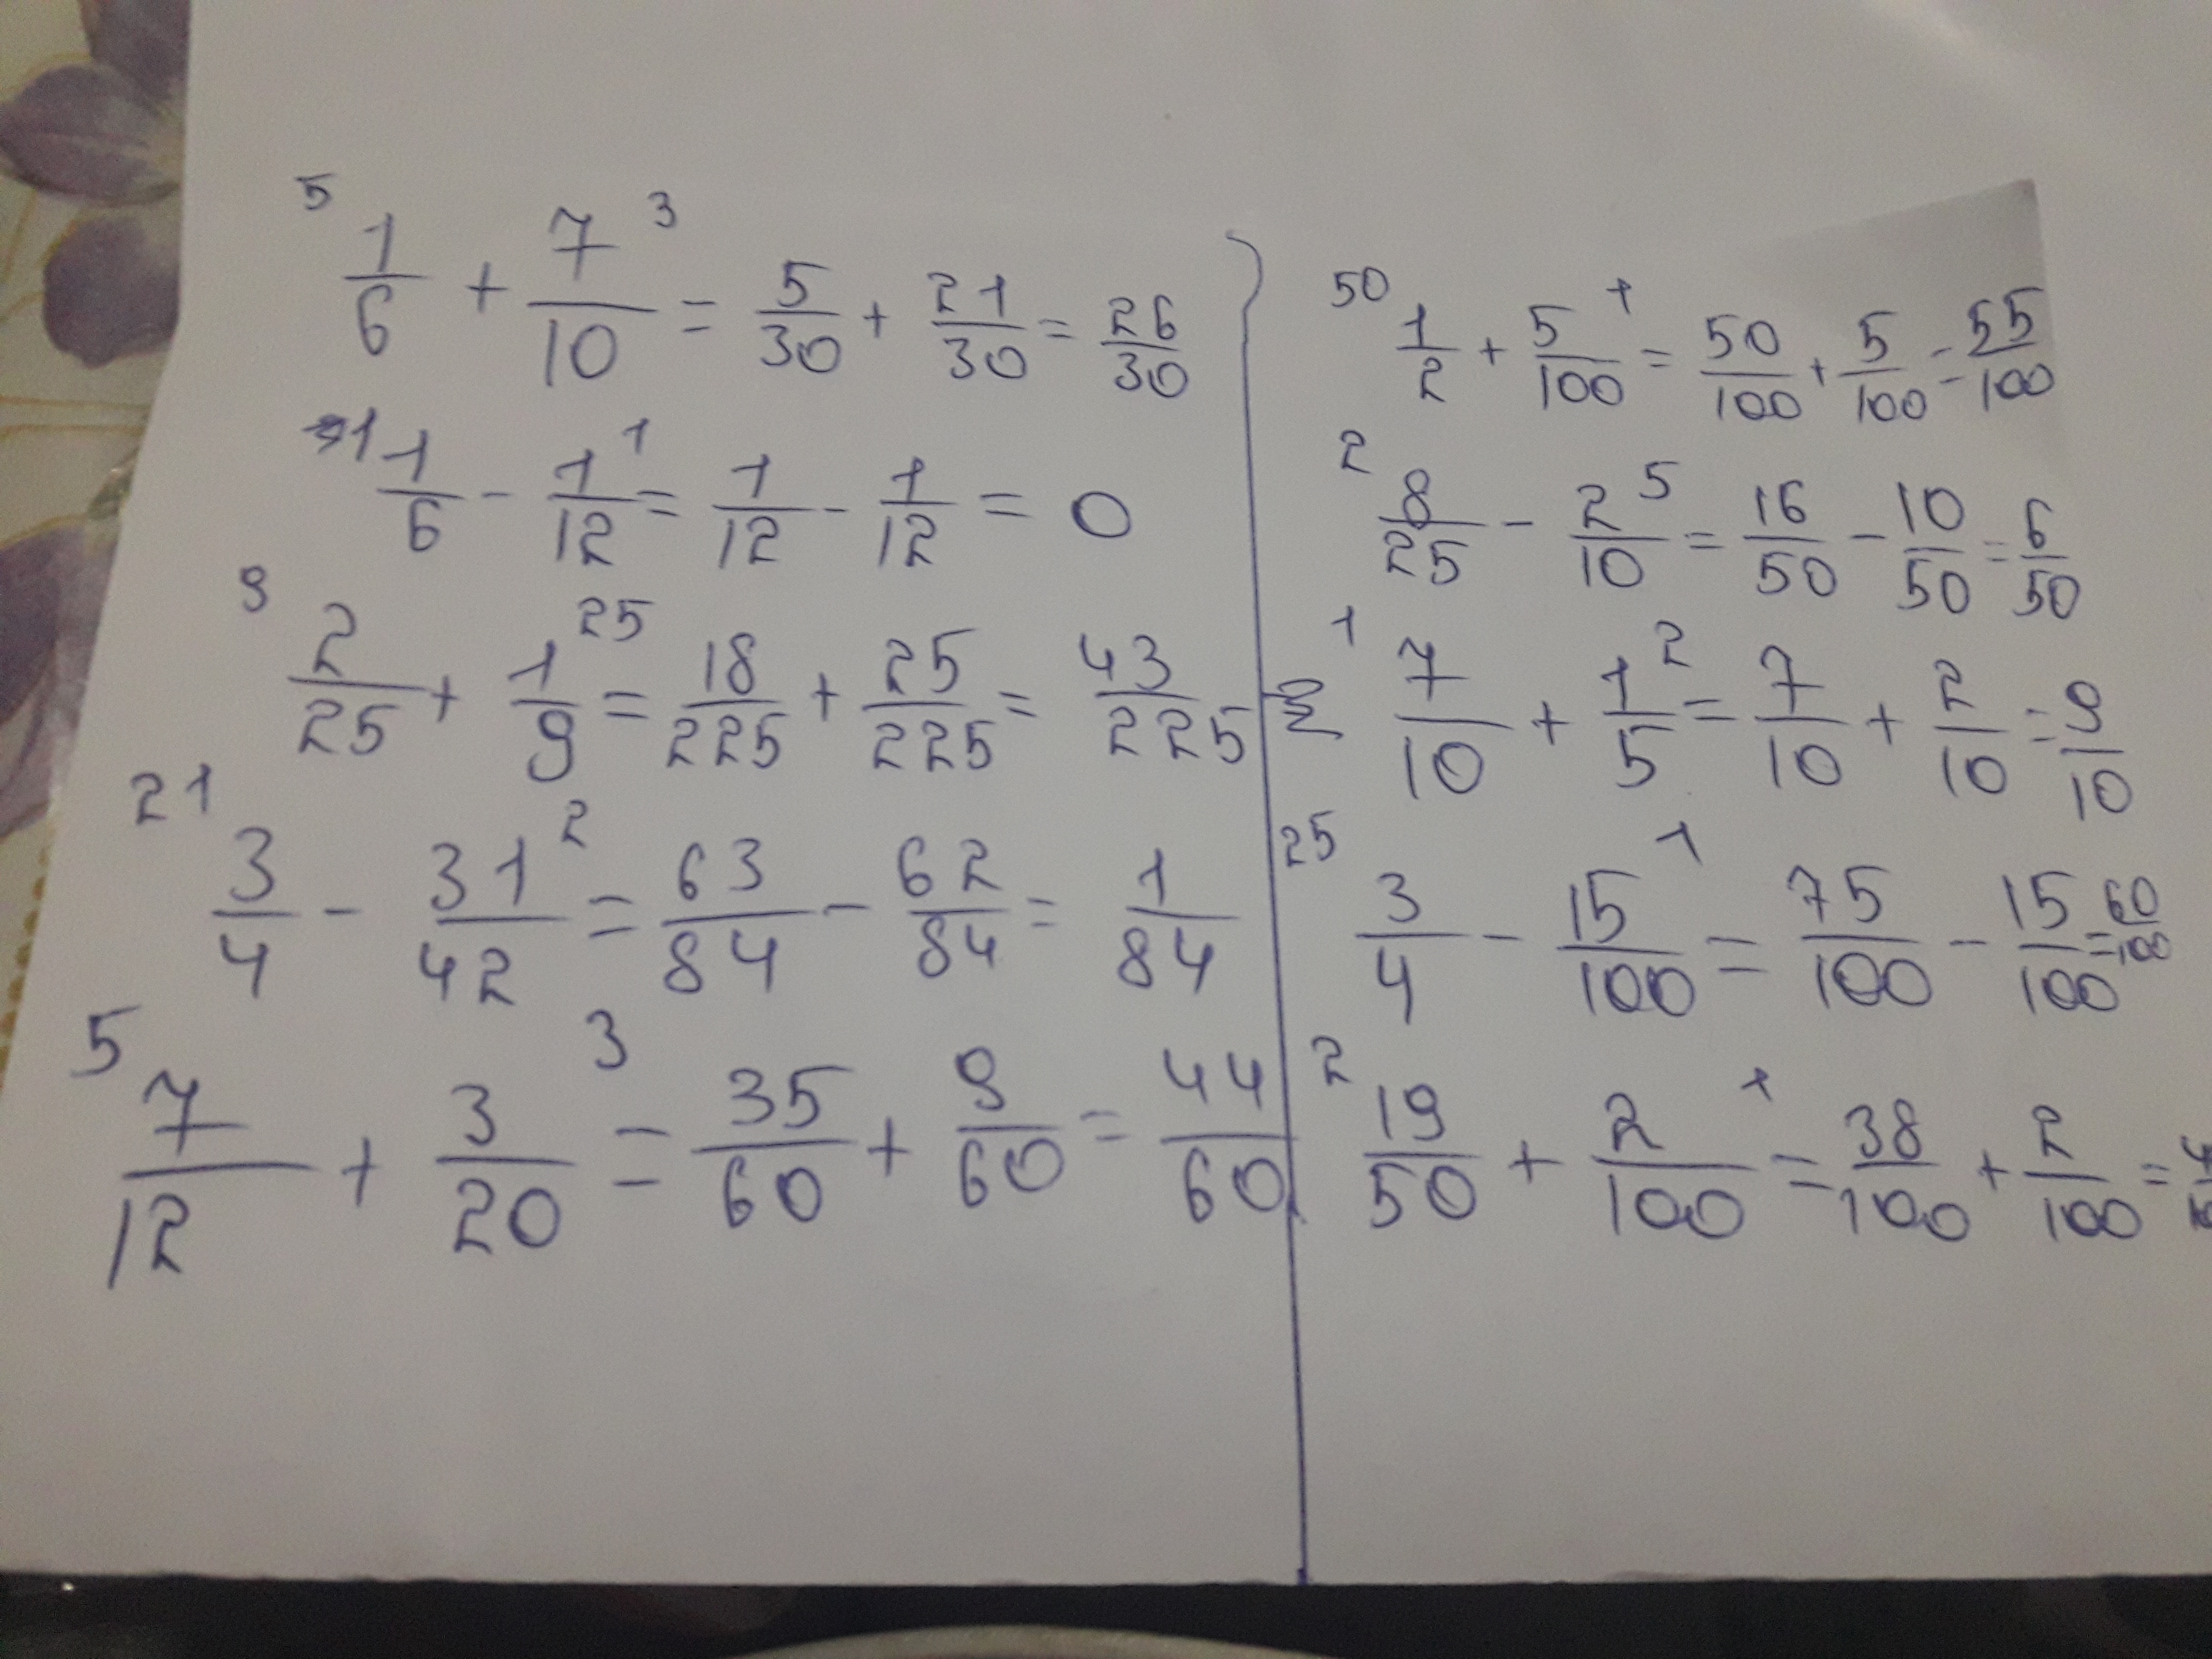 5 1/6 + 7/10 3 = 5/30 + 21/30 = 26/30
1 1/6 - 1/12 1 = 1/12 - 1/12 = 0
9 2/25 + 1/9 25 = 18/225 + 25/225 = 43/225
21 3/4 - 31/42 2 = 63/84 - 62/84 = 1/84
5 7/12 + 3/20 3 = 35/60 + 9/60 = 44/60
50 1/2 + 5/100 1 = 50/100 + 5/100 = 55/100
2 8/25 - 2/10 5 = 16/50 - 10/50 = 6/50
1 7/10 + 1/5 2 = 7/10 + 2/10 = 9/10
25 3/4 - 15/100 1 = 75/100 - 15/100 = 60/100
2 19/50 + 2/100 1 = 38/100 + 2/100 =